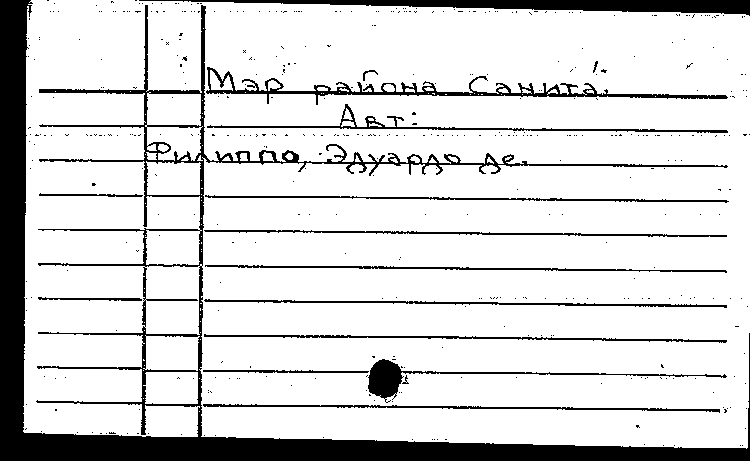 Мэр района Санита.
Авт:
Филиппо, Эдуардо де.